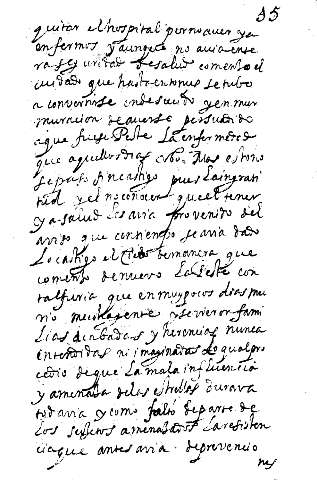 35
quitar el hospital por no aver ya
enfermos y aunque no avia ente
ra seguridad de salud comenso el
cuidado que hasta entonses se tubo
a convertirse en descuido y en mur
muracion de averse persuadido
a que fuese Peste la enfermedad
que aquellos dias ubo. Mas esto no
se paso sin castigo pues la ingrati
tud y el no conocer que el tener
ya salud les avia provenido del
aviso que con tiempo se avia dado
lo castigo el Cielo de manera que
comenso de nuevo la Peste con
tal furia que en muy pocos dias mu
rio mucha gente y se vieron fami
lias acabadas y herencias nunca
entendidas ni imaginadas lo qual pro
cedio de que la mala influencia
y amenasa de las estrellas durava
todavia y como faltó de parte de
los sujetos amenasados la resisten
cia que antes avia de prevencio
nes